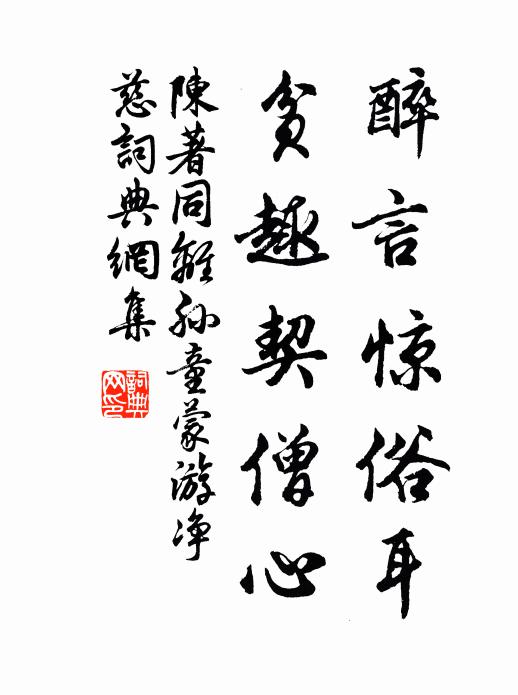 醉言惊俗耳
貧趣契僧心
陳著同雜孙童蒙游净
慈詞典網集
詞典
网印